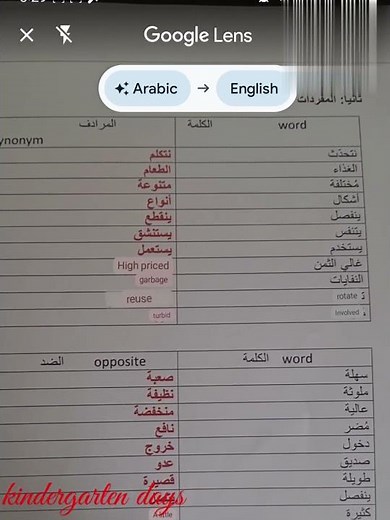 Google Lens
Arabic → English
ثانيا: المفردات
المرادف الكلمة word
ynonym
نتحدّث نتكلم
الغذاء الطعام
مُختلفة متنوعة
أشكال أنواع
ينفصل ينقطع
يتنفس يستنشق
يستخدم يستعمل
غالي الثمن High priced
النفايات garbage
rotate reuse
Involved turbid
الضد opposite الكلمة word
سهلة صعبة
ملوثة نظيفة
عالية منخفضة
مُضر نافع
دخول خروج
صديق عدو
طويلة قصيرة
ينفصل
كثيرة
kindergarten days